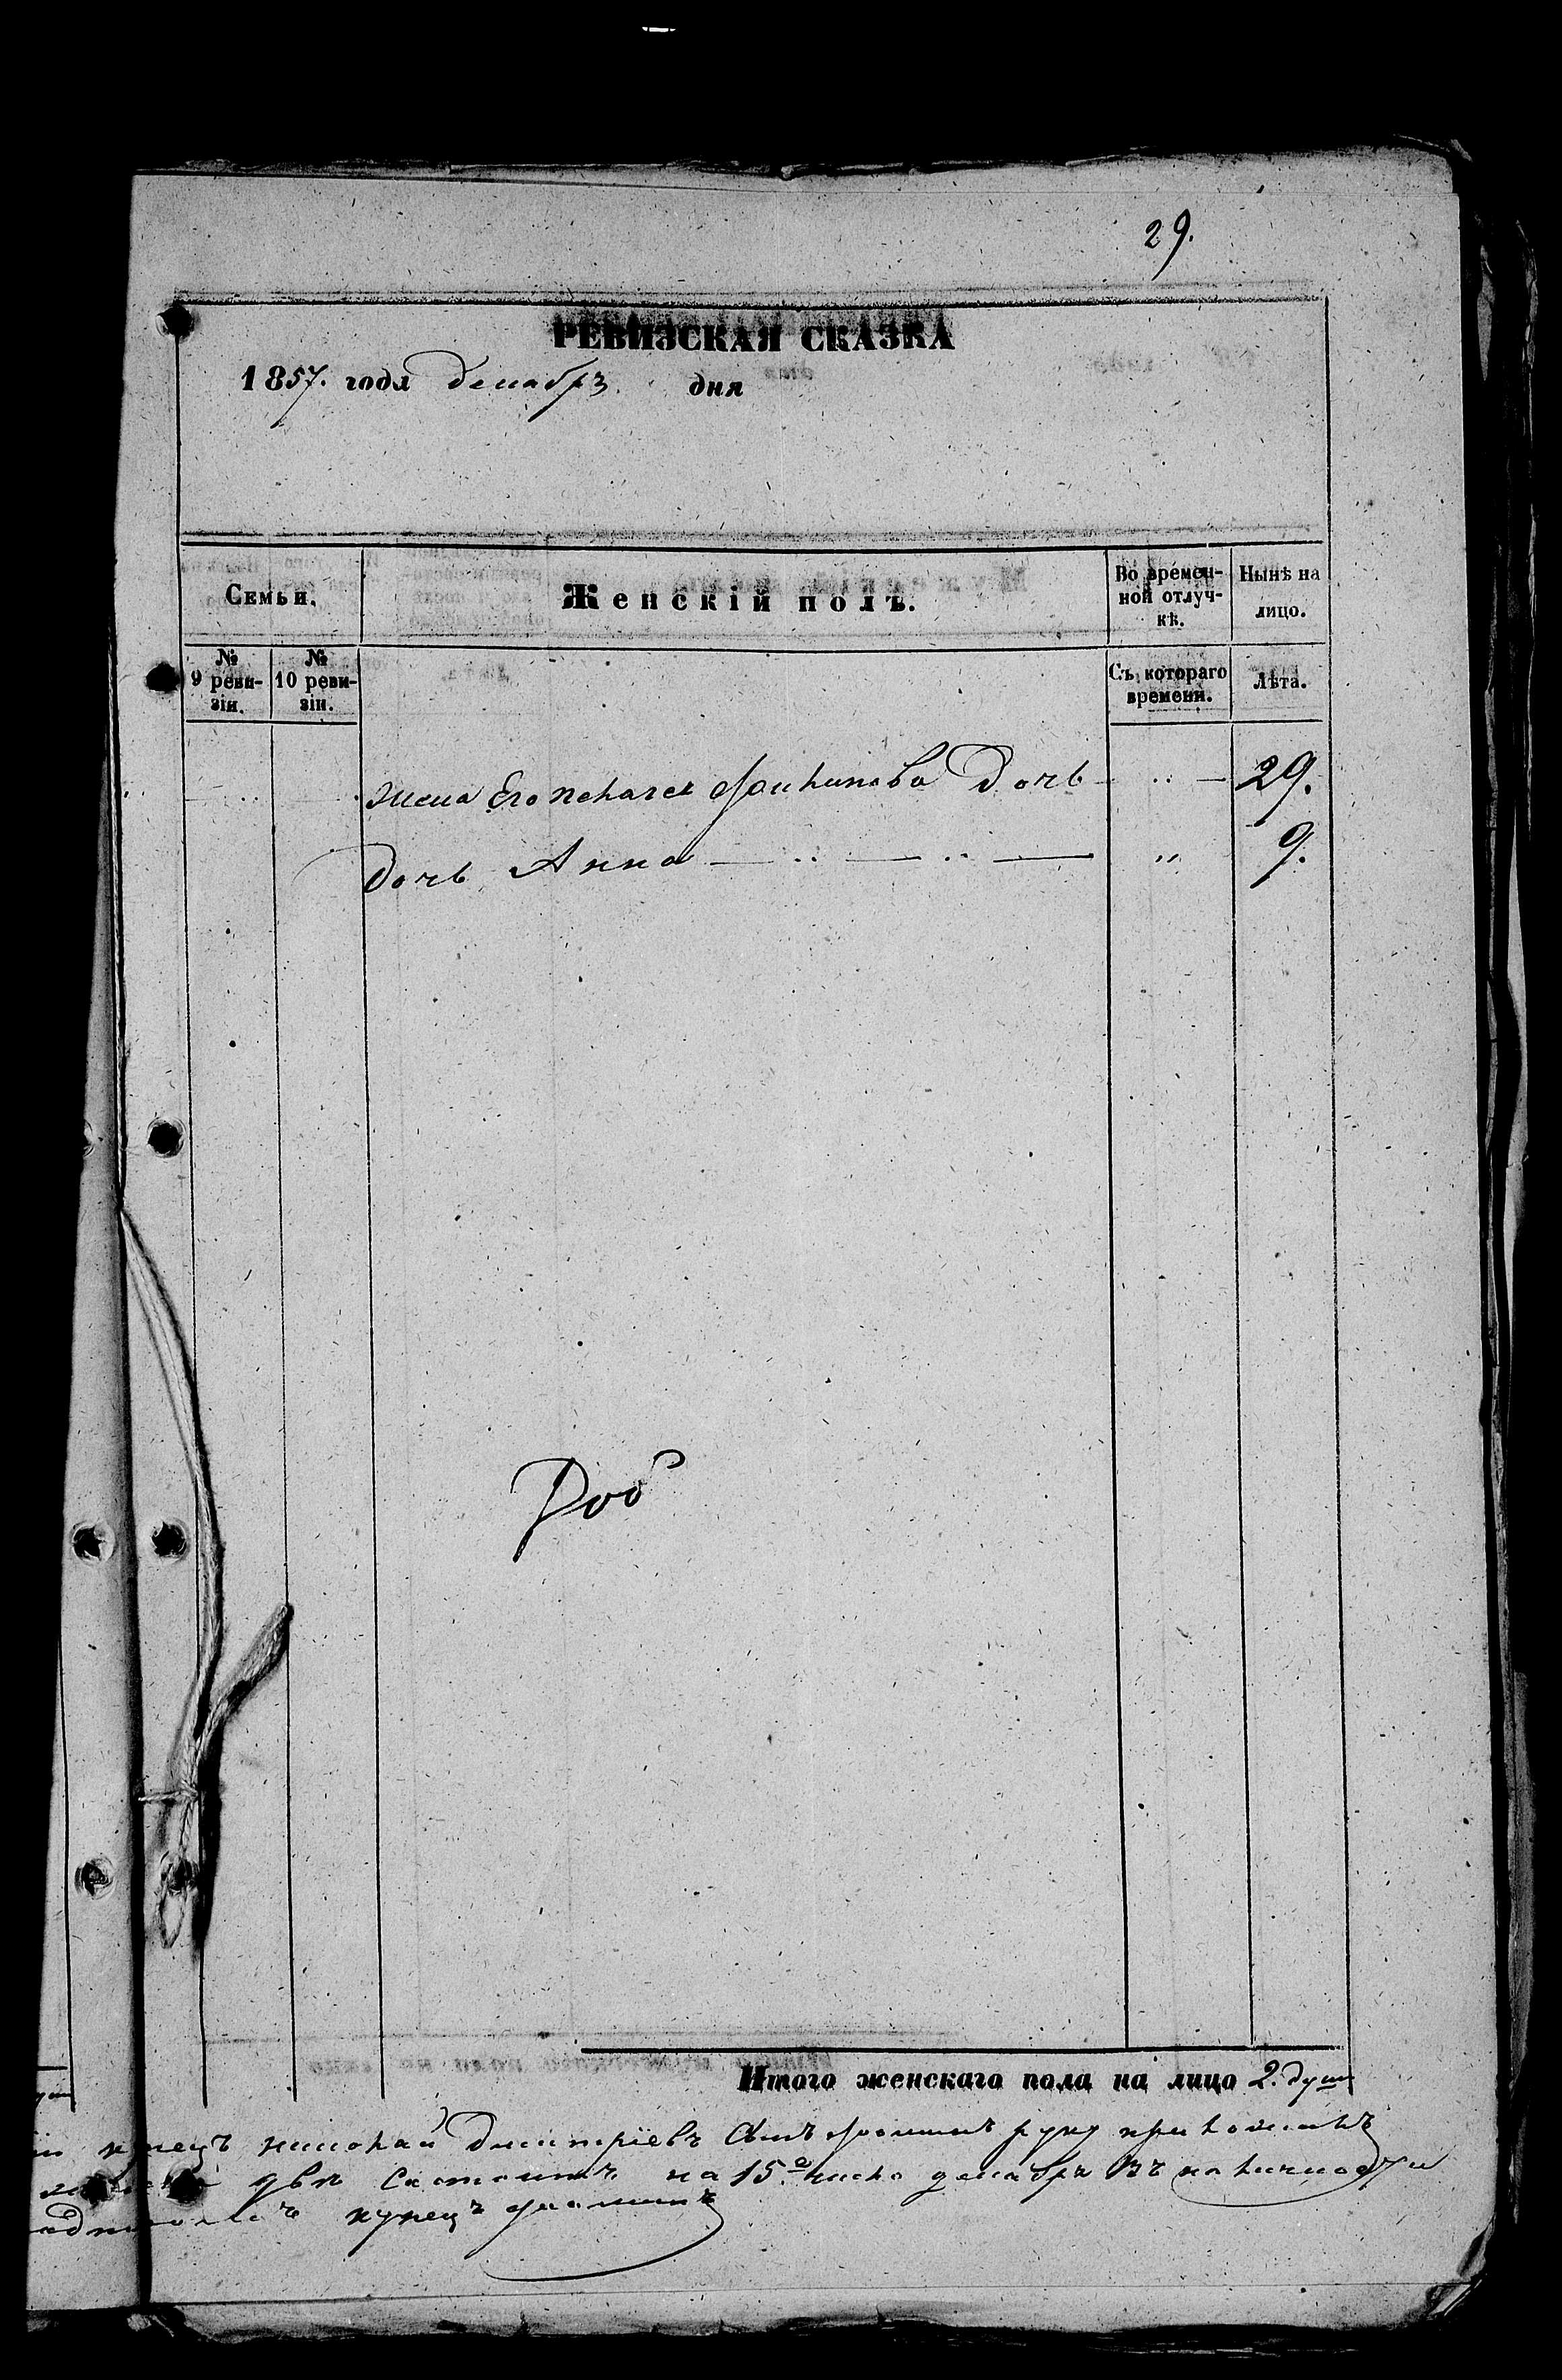 29.
РЕВИЗСКАЯ СКАЗКА
1857. года декабрь дня
Семьи.
Женскій полъ.
Во времен-
ной отлуч-
кѣ.
Нынѣ на
лицо.
№
9 реви-
зіи.
№
10 реви-
зіи.
Съ котораго
времени.
Лѣта.
жена Его Пелагея дочь 29.
дочь Анна — „ — „ — „ 9.
Итого женскаго пола на лицо 2. душ
купецъ николай дмитріевъ руку приложилъ
двѣ на 15е число декабря въ наличности
купецъ